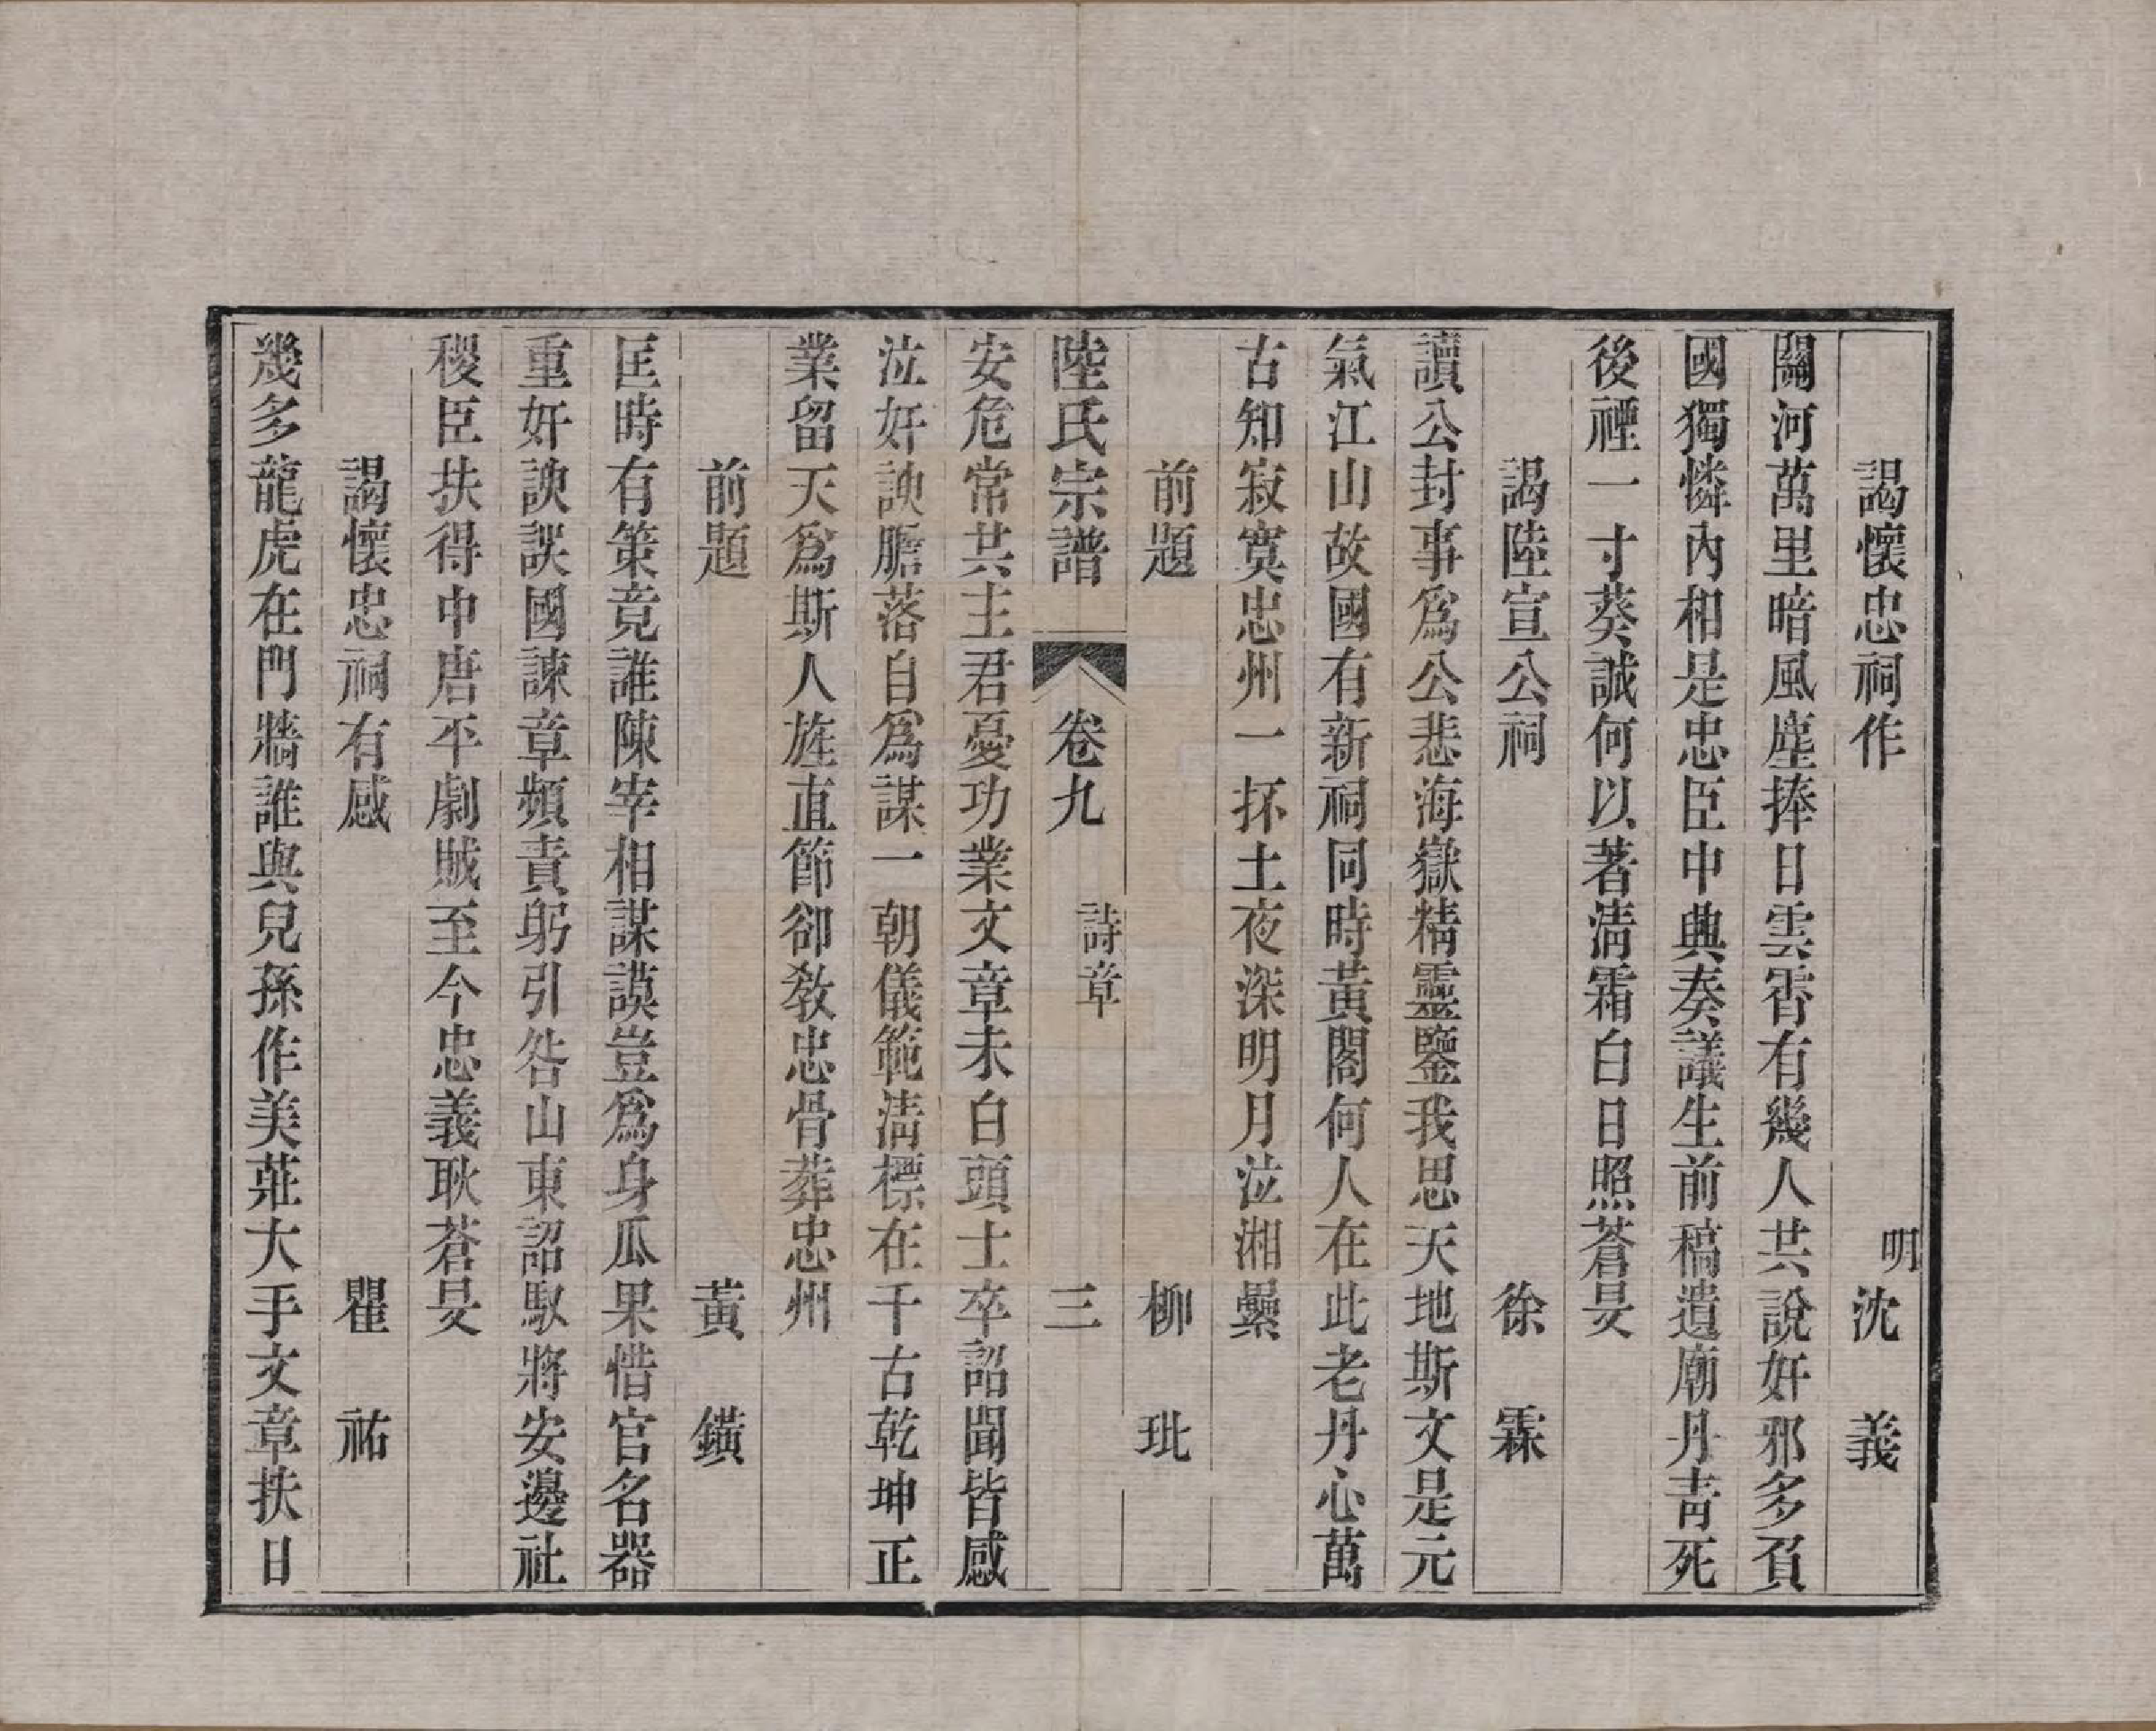 謁懷忠祠作 明沈義
關河萬里暗風塵捧日雲霄有幾人共說奸邪多負
國獨憐內相是忠臣中興奏議生前稿遺廟丹青死
後禋一寸葵誠何以著淸霜白日照蒼旻
謁陸宣公祠 徐霖
讀公封事爲公悲海嶽精靈鑒我思天地斯文是元
氣江山故國有新祠同時黃閣何人在此老丹心萬
古知寂寞忠州一抔土夜深明月泣湘纍
前題 柳玭
陸氏宗譜 卷九 詩章 三
安危常共主君憂功業文章未白頭士卒詔聞皆感
泣奸諛膽落自爲謀一朝儀範淸標在千古乾坤正
業留天爲斯人旌直節卻敎忠骨葬忠州
前題 黃鐄
匡時有策竟誰陳宰相謀謨豈爲身瓜果惜官名器
重奸諛誤國諫章頻責躬引咎山東詔馭將安邊社
稷臣扶得中唐平劇賊至今忠義耿蒼旻
謁懷忠祠有感 瞿祐
幾多龍虎在門牆誰與兒孫作美莊大手文章扶日